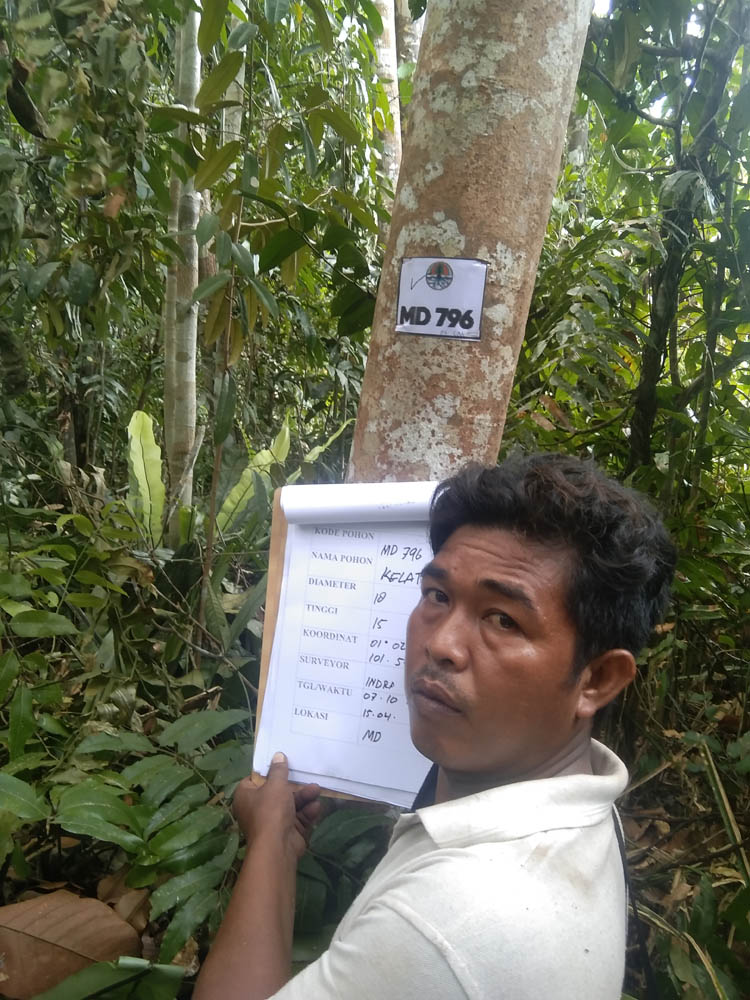 MD 796
KODE POHON MD 796
NAMA POHON KELAT
DIAMETER 18
TINGGI 15
KOORDINAT 01° 02
101. 5
SURVEYOR INDRA
TGL/WAKTU 07.10
15.04.
LOKASI MD